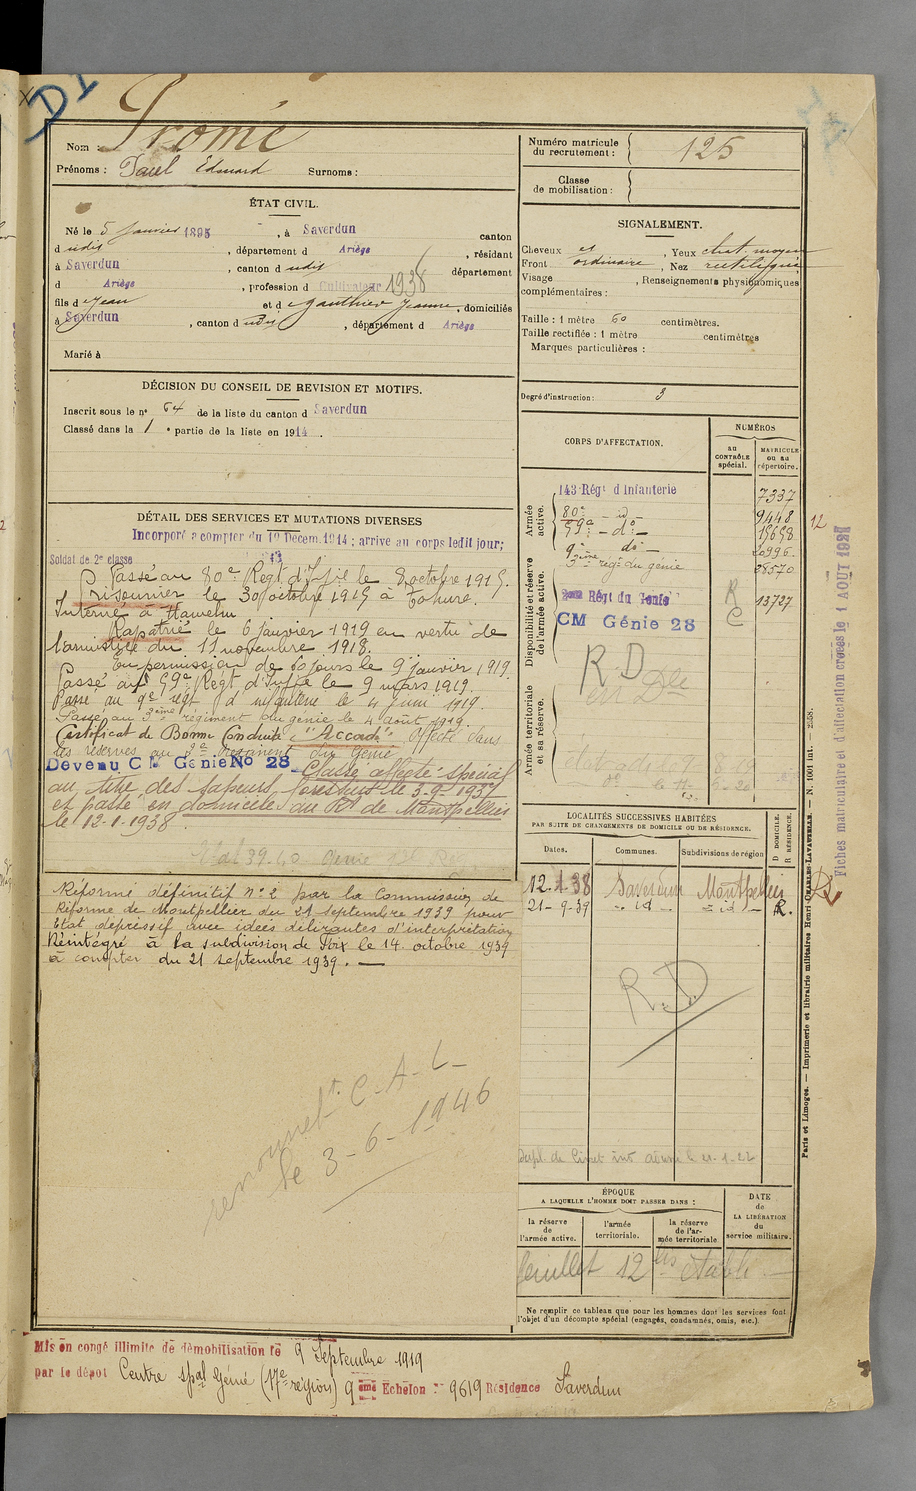 D1
Nom : Promé
Prénoms : Paul Edouard Surnoms :
Numéro matricule du recrutement : 125
Classe de mobilisation :
ÉTAT CIVIL.
Né le 5 Janvier 1895, à Saverdun canton
d udit, département d Ariège, résidant
à Saverdun, canton d udit département
d Ariège, profession d Cultivateur 1938
fils d e Jean et d e Gauthier Jeanne, domiciliés
à Saverdun, canton d udit, département d Ariège
Marié à
SIGNALEMENT.
Cheveux, Yeux chat. moyen
Front ordinaire, Nez rectiligne
Visage, Renseignements physiognomiques
complémentaires :
Taille : 1 mètre 60 centimètres.
Taille rectifiée : 1 mètre centimètres
Marques particulières :
Degré d'instruction : 3
DÉCISION DU CONSEIL DE REVISION ET MOTIFS.
Inscrit sous le n° 64 de la liste du canton d Saverdun
Classé dans la 1 e partie de la liste en 1914.
CORPS D'AFFECTATION.
NUMÉROS
au CONTRÔLE spécial.
MATRICULE ou au répertoire.
Armée active.
143 Régt d'Infanterie 7337
80e - d° - 9448
59e - d° - 15698
9e - d° - 20996
3ème rég. du génie 28570
Disponibilité et réserve de l'armée active.
2me Régt du Genie R 13727
CM Génie 28 C
R D
Armée territoriale et sa réserve.
DÉTAIL DES SERVICES ET MUTATIONS DIVERSES
Incorporé à compter du 19 Décem. 1914 ; arrivé au corps ledit jour;
Soldat de 2e classe
Passé au 80e Régt d'Inf-ie le 8 octobre 1915.
Prisonnier le 30 octobre 1915 à Tahure.
Interné à
Rapatrié le 6 janvier 1919 en vertu de
l'amistice du 11 novembre 1918.
En permission de 60 jours le 9 janvier 1919
Passé au 59e Régt d'Inf-ie le 9 mars 1919.
Passé au 9e régt d'infanterie le 4 Juin 1919
Passé au 3ème régiment du génie le 4 août 1919.
Certificat de Bonne Conduite : "Accordé" Affecté dans
les réserves au 2e Régiment du Génie
Devenu C M Génie No 28 Classé affecté spécial
au titre des Sapeurs le 3-9-1937
et passé en domicile au Rt de Montpellier
le 12-1-1938
Réformé définitif n° 2 par la Commission de
Réforme de Montpellier du 21 septembre 1939 pour
Etat dépressif avec idées délirantes d'interprétation
Réintégré à la subdivision de Foix le 14 octobre 1939
à compter du 21 septembre 1939.
C-A-L
le 3-6-1946
LOCALITÉS SUCCESSIVES HABITÉES
PAR SUITE DE CHANGEMENTS DE DOMICILE OU DE RÉSIDENCE.
Dates. Communes. Subdivisions de région
D DOMICILE. R RÉSIDENCE.
12.1.38 Saverdun Montpellier
21-9-39 - id - - id - R.
R.D
ÉPOQUE
A LAQUELLE L'HOMME DOIT PASSER DANS :
la réserve de l'armée active.
l'armée territoriale.
la réserve de l'armée territoriale
DATE de LA LIBÉRATION du service militaire.
feuillet 12 bis établi
Ne remplir ce tableau que pour les hommes dont les services font
l'objet d'un décompte spécial (engagés, condamnés, omis, etc.).
Mis en congé illimité de démobilisation le 9 Septembre 1919
par le dépôt Centre spal Génie (17e région) 9 ème Echelon N° 9619 Résidence Saverdun
12
Fiches matriculaire et d'affectation créées le 1 AOUT 1927
Paris et Limoges. — Imprimerie et librairie militaires Henri CHARLES-LAVAUZELLE. — N. 1001 int. —